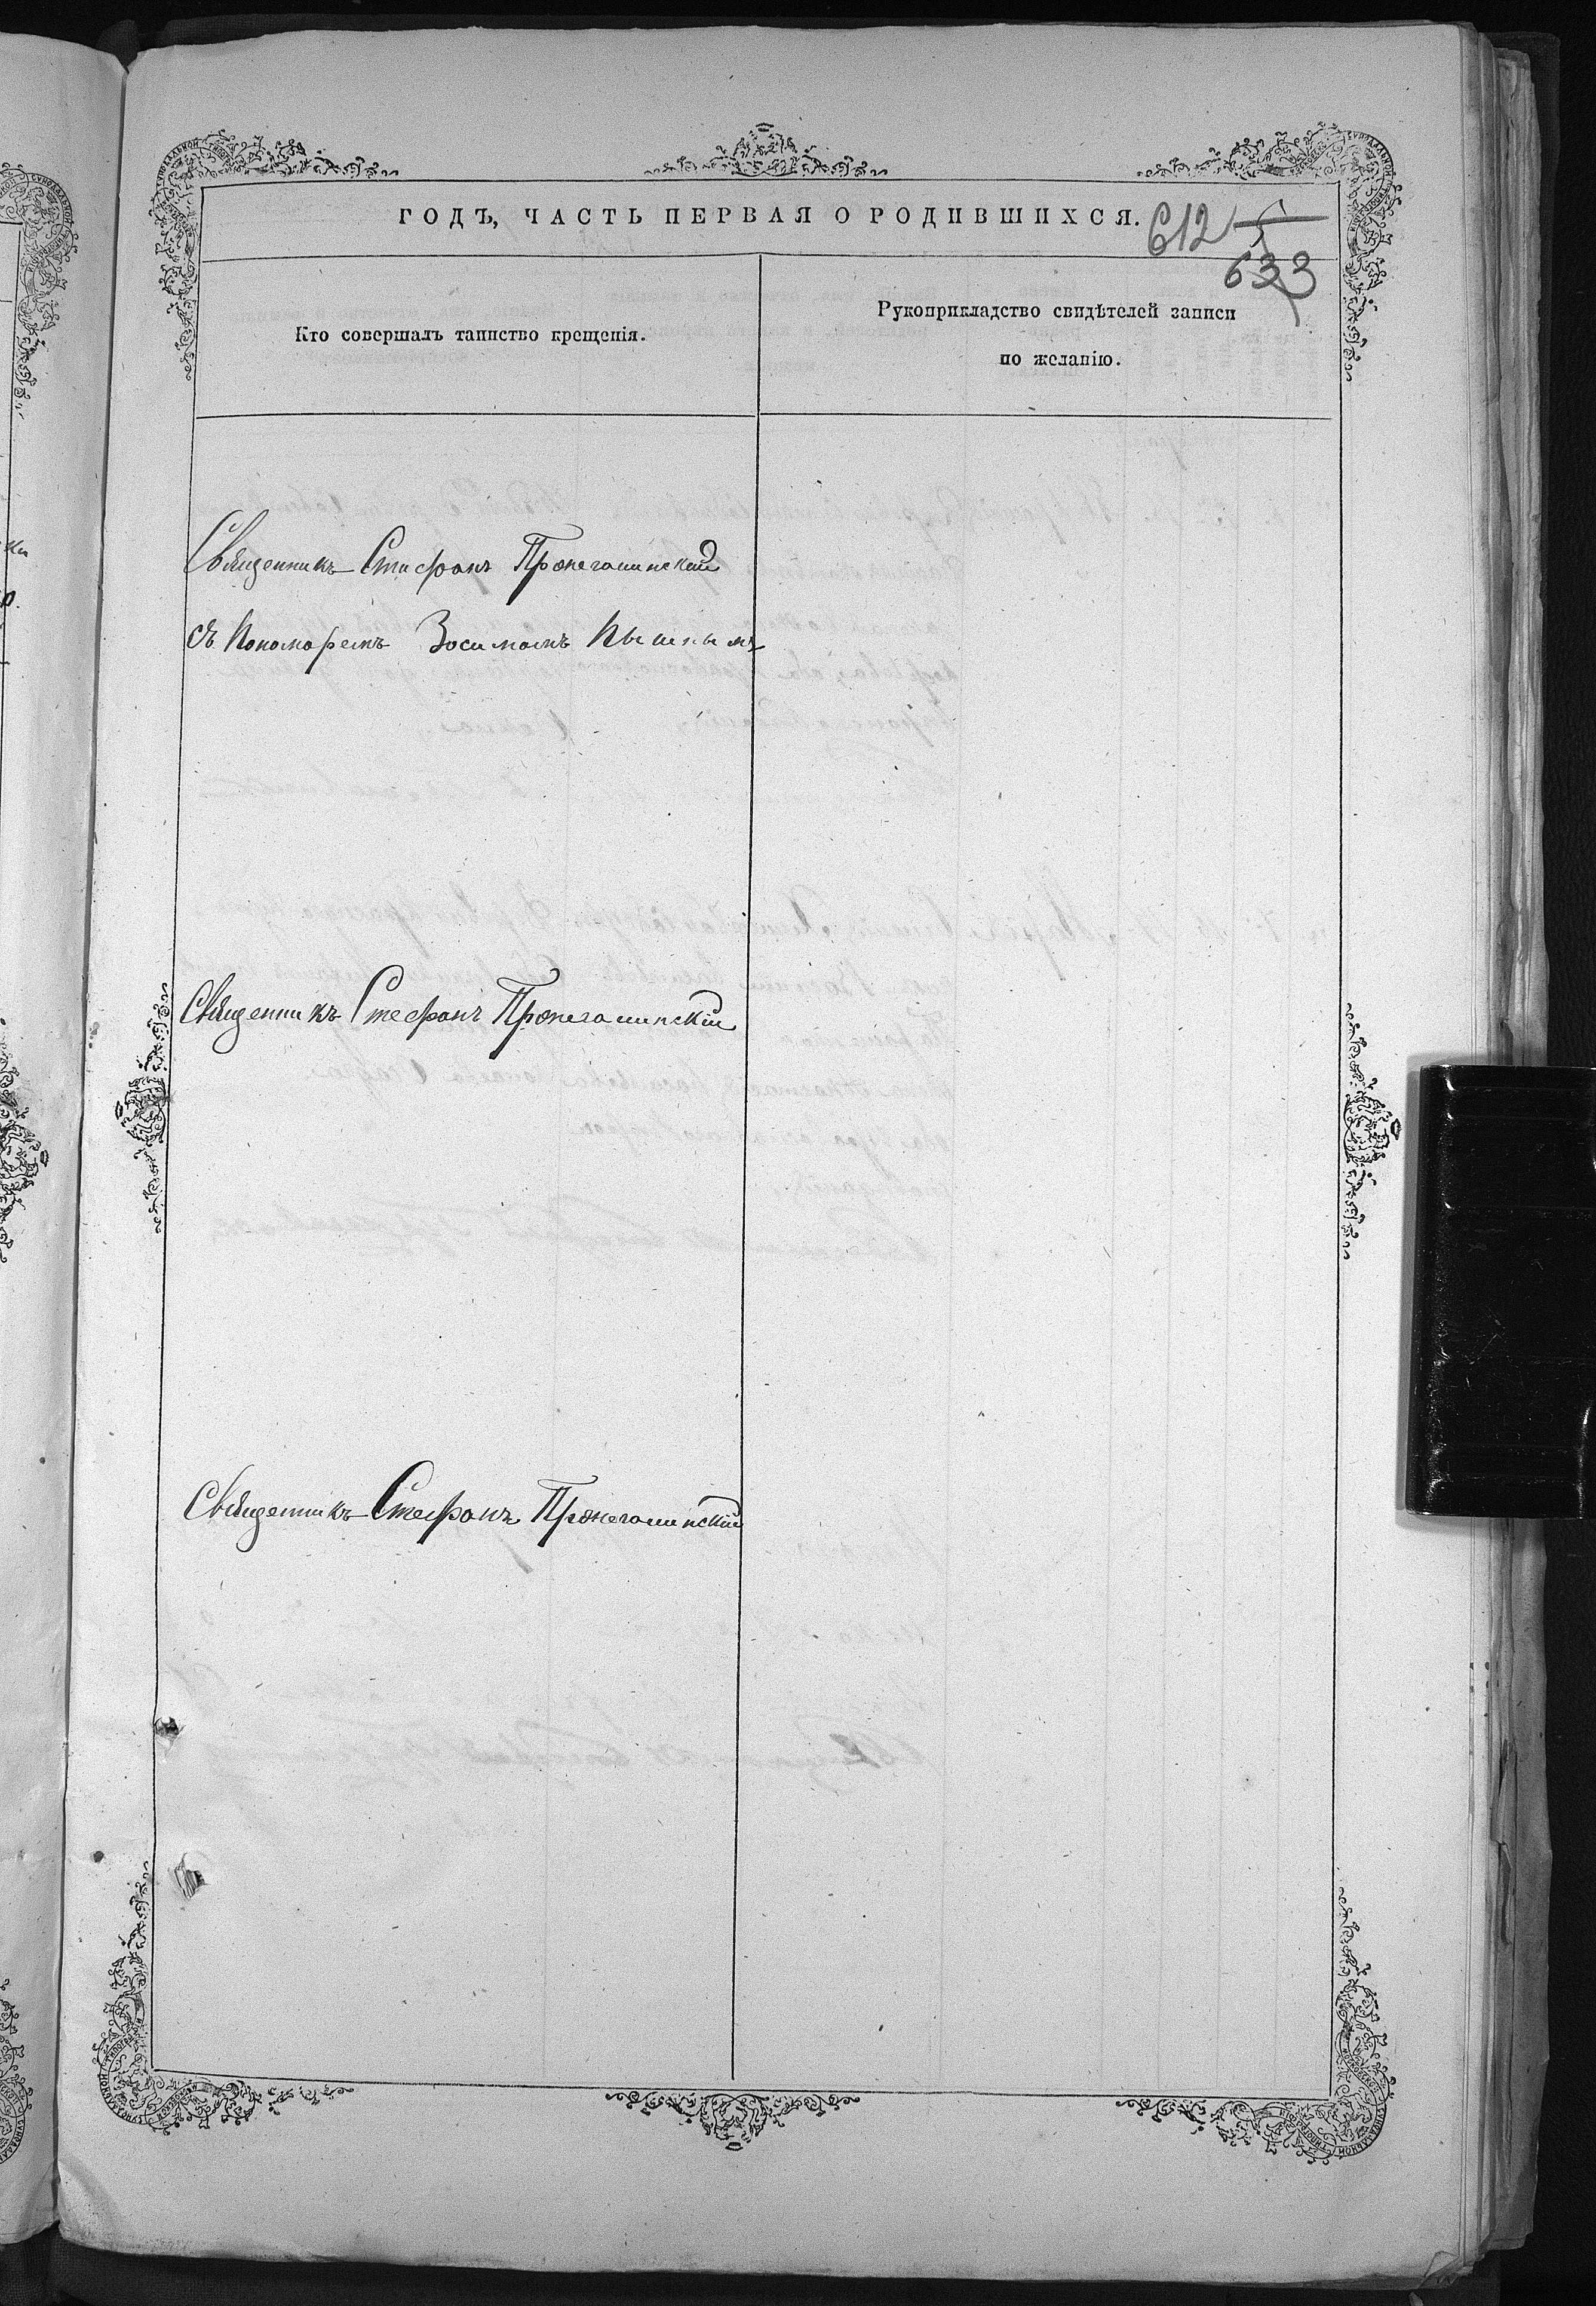 ГОДЪ, ЧАСТЬ ПЕРВАЯ О РОДИВШИХСЯ.
612 5
633
Кто совершалъ таинство крещенія.
Рукоприкладство свидѣтелей записи
по желанію.
Священникъ Стефанъ Пронегашинский
съ Пономаремъ Зосимомъ
Священникъ Стефанъ Пронегашинскій
Священникъ Стефанъ Пронегашинскій